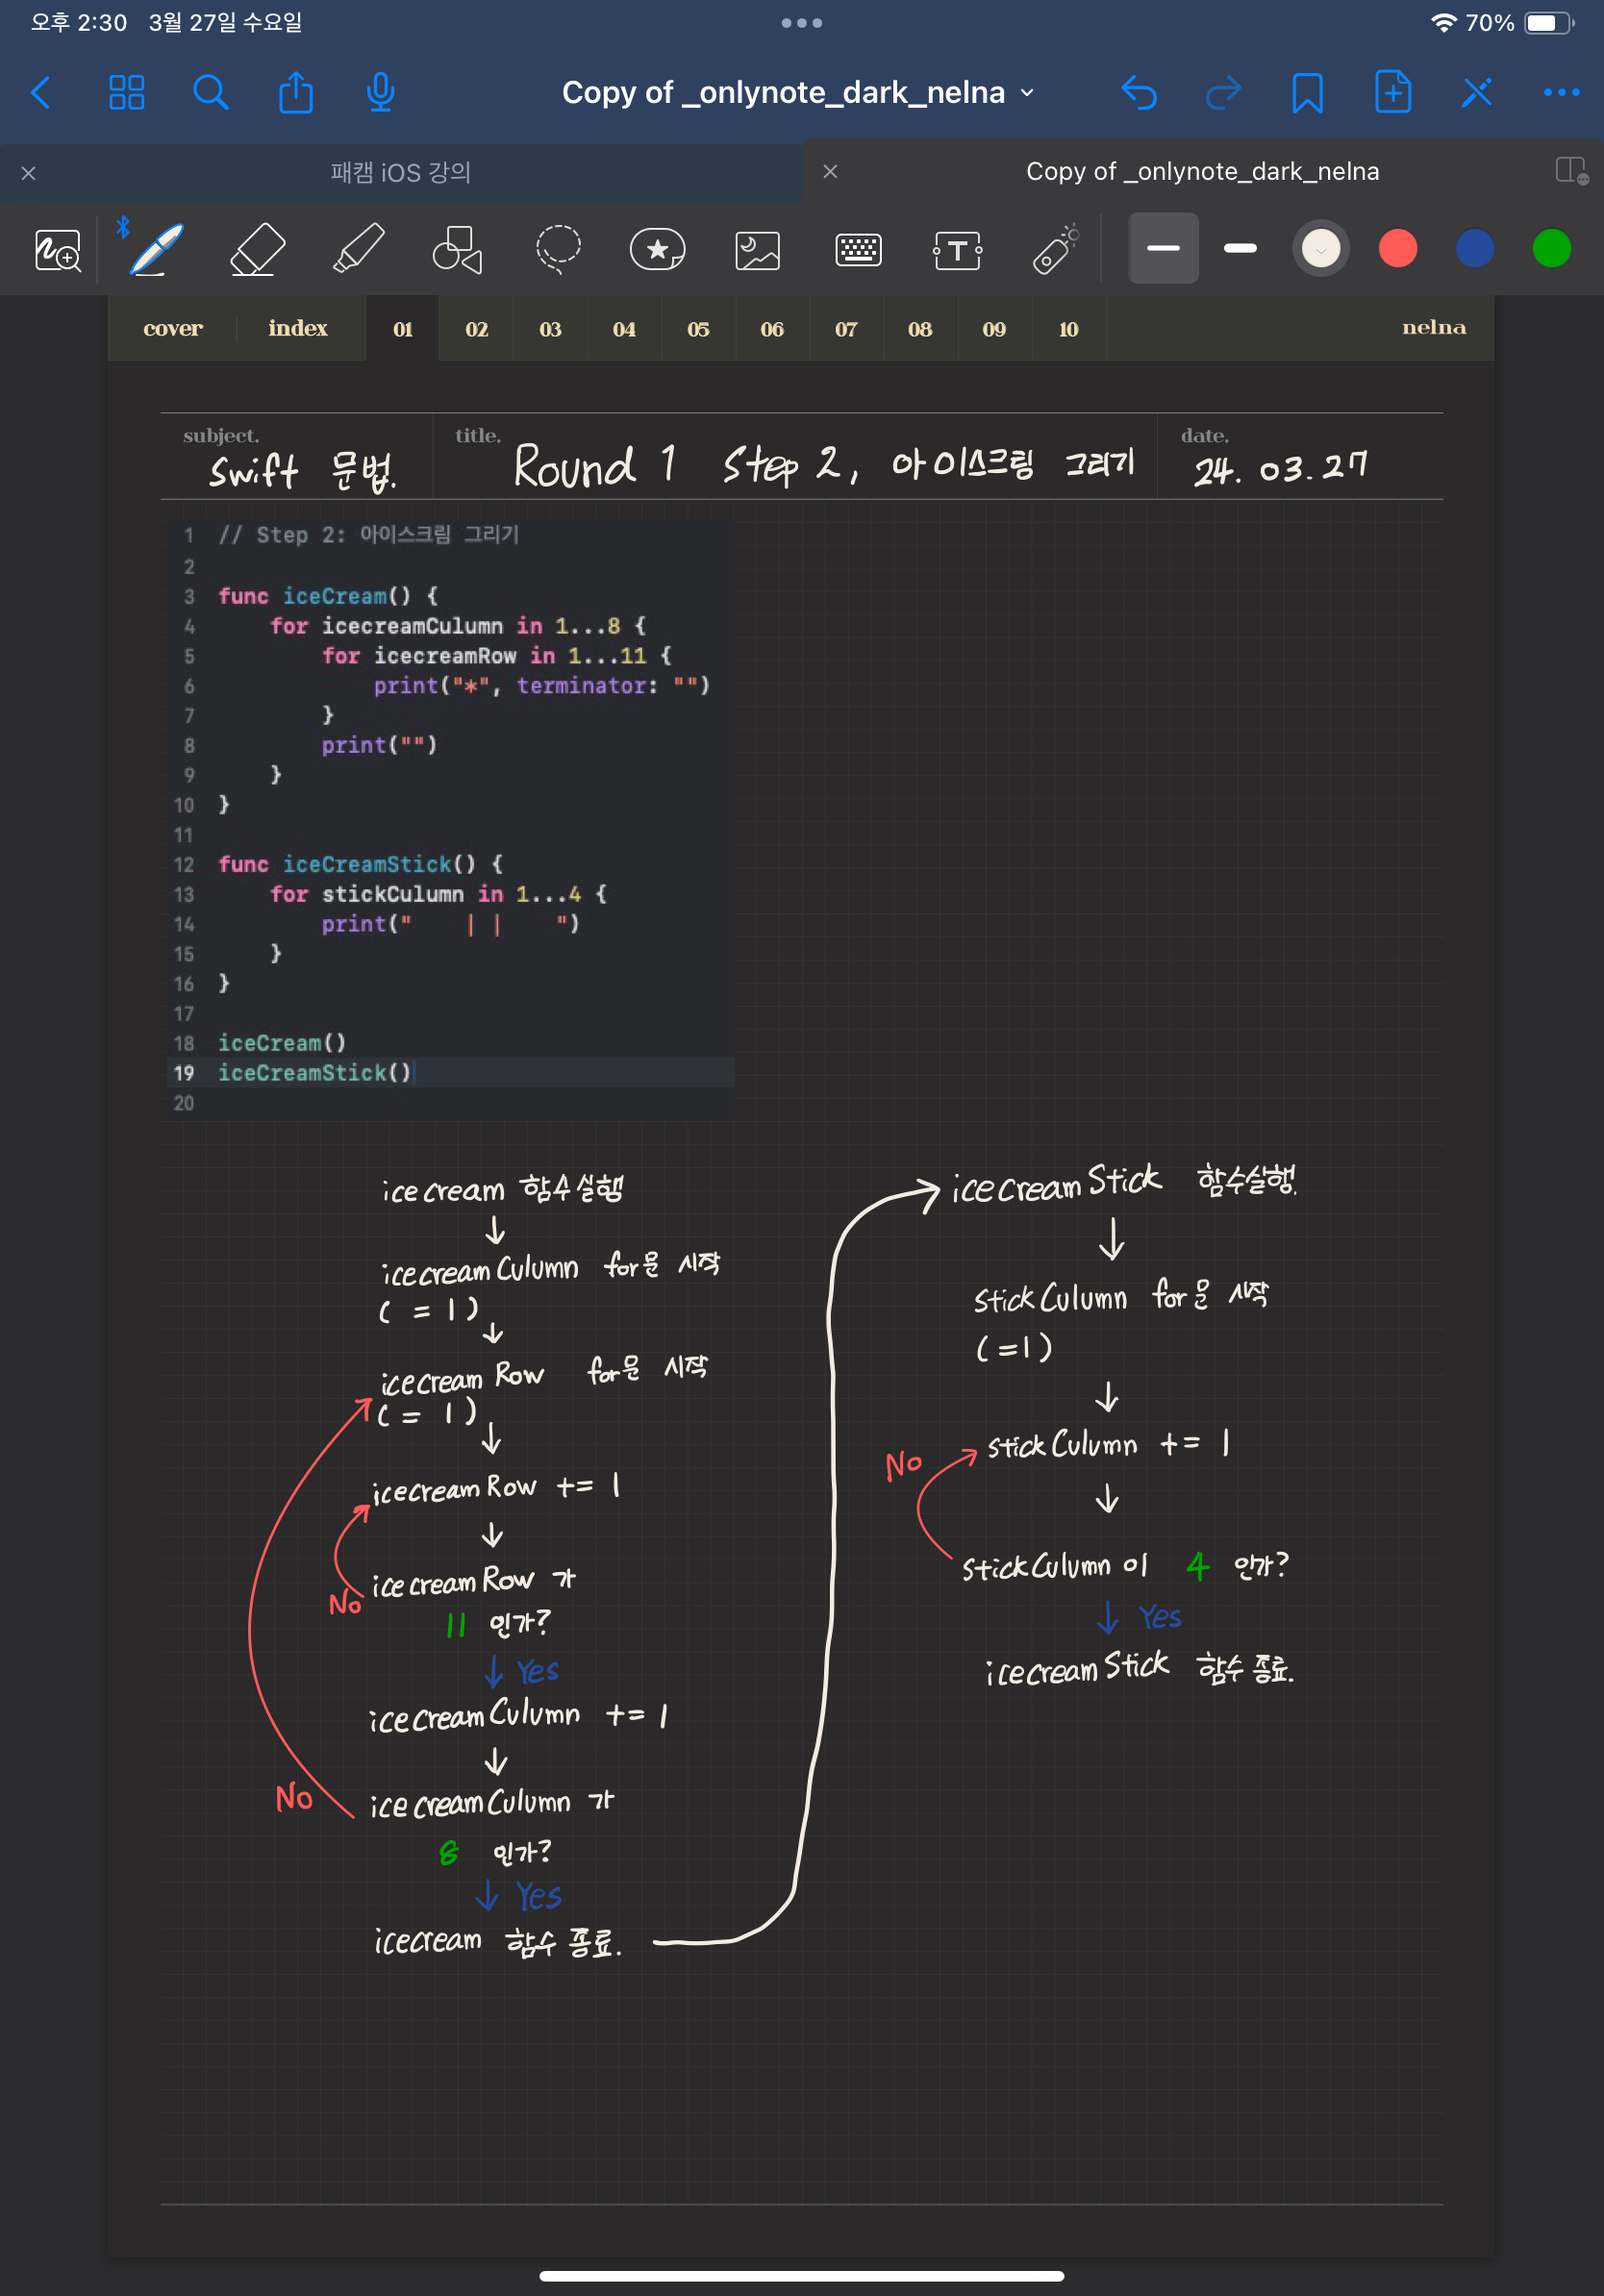 오후 2:30 3월 27일 수요일
70%
Copy of _onlynote_dark_nelna
패캠 iOS 강의
Copy of _onlynote_dark_nelna
cover index 01 02 03 04 05 06 07 08 09 10 nelna
subject. title. date.
Swift 문법. Round 1 Step 2, 아이스크림 그리기 24. 03. 27
1 // Step 2: 아이스크림 그리기
2
3 func iceCream() {
4     for icecreamCulumn in 1...8 {
5         for icecreamRow in 1...11 {
6             print("*", terminator: "")
7         }
8         print("")
9     }
10 }
11
12 func iceCreamStick() {
13     for stickCulumn in 1...4 {
14         print("    | |    ")
15     }
16 }
17
18 iceCream()
19 iceCreamStick()
20
icecream 함수실행
↓
icecreamCulumn for문 시작
( = 1 )
↓
icecreamRow for문 시작
( = 1 )
↓
icecreamRow += 1
↓
icecreamRow 가
No
11 인가?
↓ Yes
icecreamCulumn += 1
↓
No
icecreamCulumn 가
8 인가?
↓ Yes
icecream 함수 종료.
icecreamStick 함수실행.
↓
stickCulumn for문 시작
(=1)
↓
stickCulumn += 1
No
↓
stickCulumn 이 4 인가?
↓ Yes
icecreamStick 함수 종료.